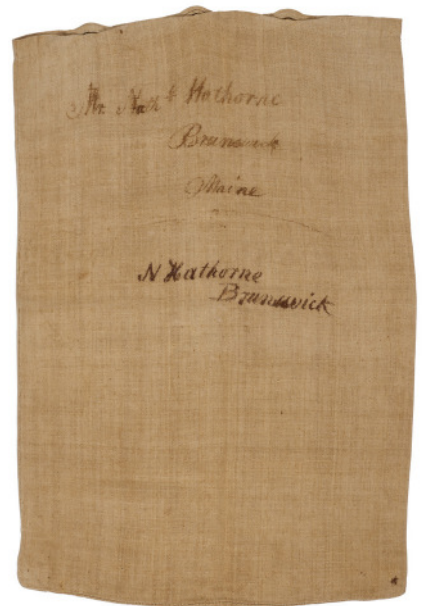 Mr Nathl Hathorne
Brunswick
Maine
N Hathorne
Brunswick